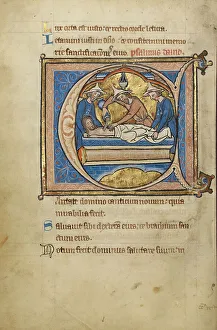 ux orta est iusto: et rectis corde leticia.
Letamini iusti in dño: & confitemini memo
rie sanctificationis eius. psalmus dauid.
C
antate domino canticum nouum: quia
mirabilia fecit.
Saluauit sibi dextera eius: et brachium san
ctum eius.
Notum fecit dominus salutare suum: in